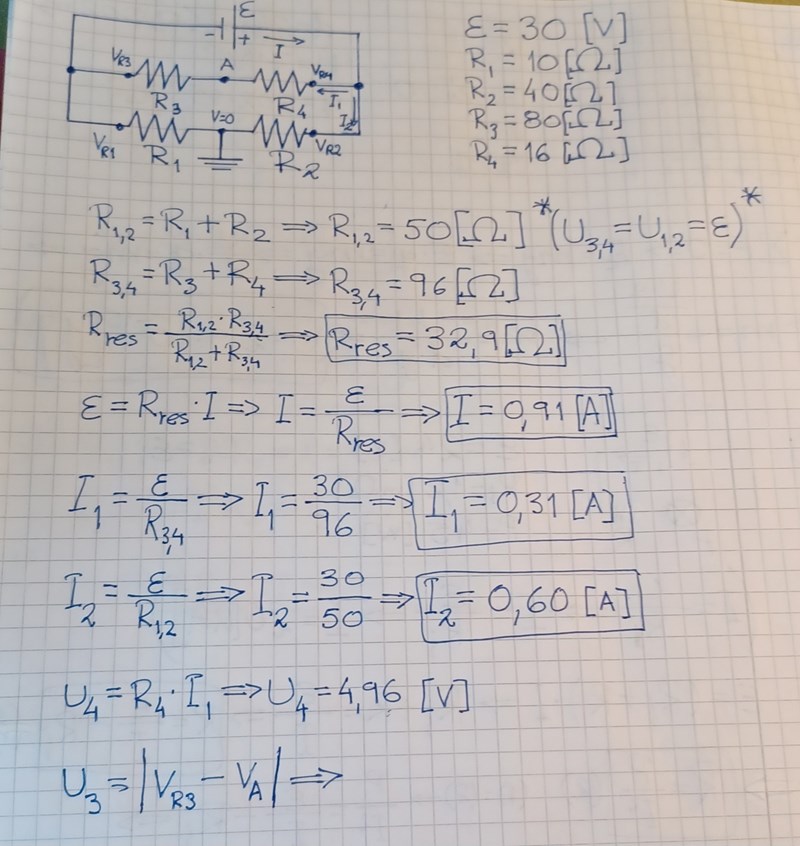 ε
- +
I
V_R3 A V_R4
R_3 R_4 I_1
V=0 I_2
V_R1 R_1 R_2 V_R2
ε = 30 [V]
R_1 = 10 [Ω]
R_2 = 40 [Ω]
R_3 = 80 [Ω]
R_4 = 16 [Ω]
R_1,2 = R_1 + R_2 ⟹ R_1,2 = 50 [Ω] *(U_3,4 = U_1,2 = ε)*
R_3,4 = R_3 + R_4 ⟹ R_3,4 = 96 [Ω]
R_res = (R_1,2 · R_3,4)/(R_1,2 + R_3,4) ⟹ R_res = 32,9 [Ω]
ε = R_res · I ⟹ I = ε/R_res ⟹ I = 0,91 [A]
I_1 = ε/R_3,4 ⟹ I_1 = 30/96 ⟹ I_1 = 0,31 [A]
I_2 = ε/R_1,2 ⟹ I_2 = 30/50 ⟹ I_2 = 0,60 [A]
U_4 = R_4 · I_1 ⟹ U_4 = 4,96 [V]
U_3 = |V_R3 - V_A| ⟹